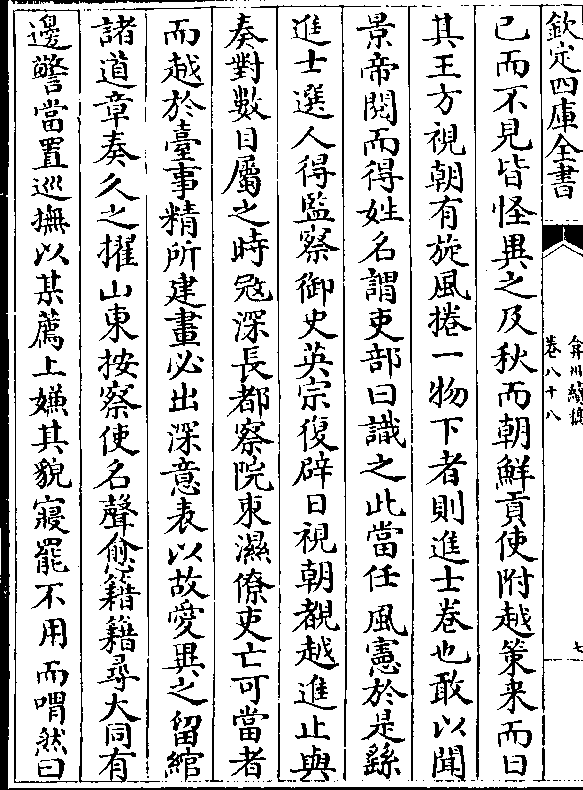 欽定四庫全書
弇州續稿
卷八十八
七
已而不見皆怪異之及秋而朝鮮貢使附越策来而曰
其王方視朝有旋風捲一物下者則進士卷也敢以聞
景帝閱而得姓名謂吏部曰識之此當任風憲於是繇
進士選人得監察御史英宗復辟日視朝覩越進止與
奏對數目屬之時冦深長都察院束濕僚吏亡可當者
而越於臺事精所建畫必出深意表以故愛異之留綰
諸道章奏久之擢山東按察使名聲愈籍籍尋大同有
邊警當置巡撫以某薦上嫌其貌寢罷不用而喟然曰